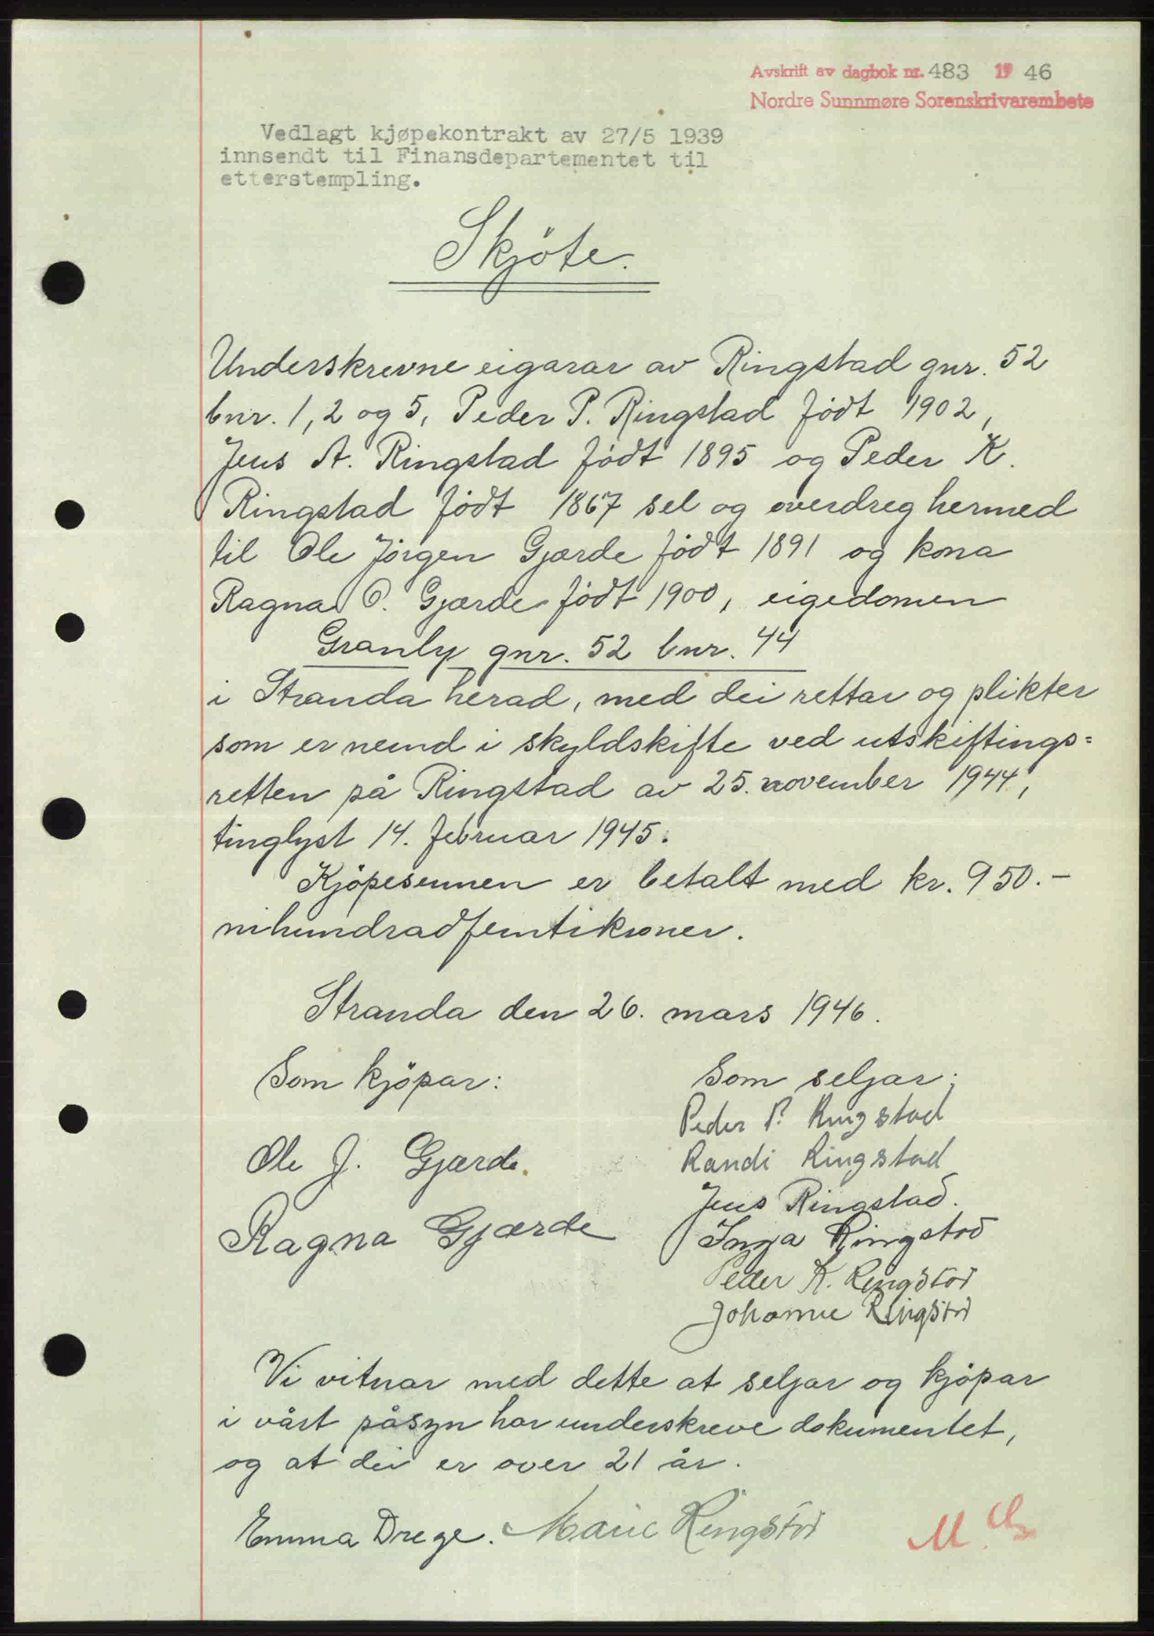 Avskrift av dagbok nr. 483 19 46
Nordre Sunnmøre Sorenskrivarembete
Vedlagt kjøpekontrakt av 27/5 1939
innsendt til Finansdepartementet til
etterstempling.
Skjöte.
Underskrevne eigarar av Ringstad gnr. 52
bnr. 1, 2 og 5, Peder P. Ringstad födt 1902,
Jens A. Ringstad födt 1895 og Peder K.
Ringstad födt 1867 sel og overdreg hermed
til Ole Jörgen Gjærde födt 1891 og kona
Ragna O. Gjærde födt 1900, eigedomen
Granly gnr. 52 bnr. 44
i Stranda herad, med dei rettar og plikter
som er nemd i skyldskifte ved utskiftings=
retten på Ringstad av 25. november 1944,
tinglyst 14. februar 1945.
Kjöpesumen er betalt med kr. 950.-
nihundradfemtikroner.
Stranda den 26. mars 1946.
Som kjöpar:
Ole J. Gjærde.
Ragna Gjærde
Som seljar:
Peder P. Ringstad
Randi Ringstad
Jens Ringstad.
Inga Ringstad
Peder K. Ringstad
Johanne Ringstad
Vi vitnar med dette at seljar og kjöpar
i vårt påsyn har underskreve dokumentet,
og at dei er over 21 år.
Emma Drege. Marie Ringstad